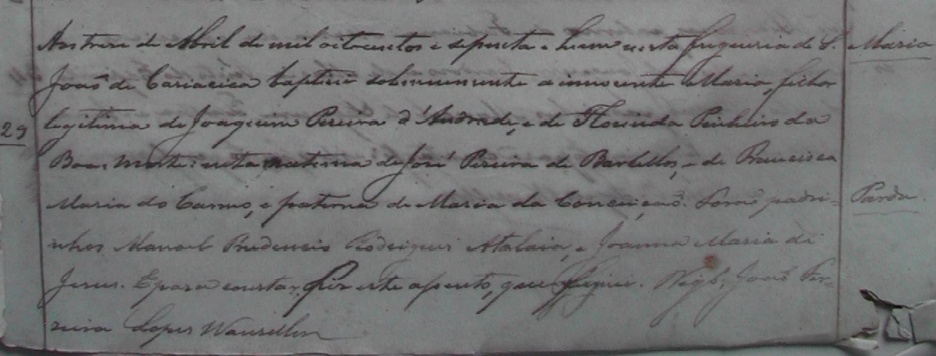 Aos treze de Abril de mil oitocentos e sepcenta e hum nesta freguesia de S. Maria
João de Cariacica baptizei solemnemente a innocente Maria, filha
legitima de Joaquim Pereira d'Andrade, e de Florinda Pinheiro da
29
Boa Morte: neta materna de José Pereira de Barcellos, e de Francisca
Maria do Carmo, e paterna de Maria da Conceição. Forão padri- Parda.
nhos Manoel Prudencio Rodrigues Atalaia, e Joanna Maria de
Jesus. E para constar fiz este assento, que assignei. João Fer-
reira Lopes Wanzeller